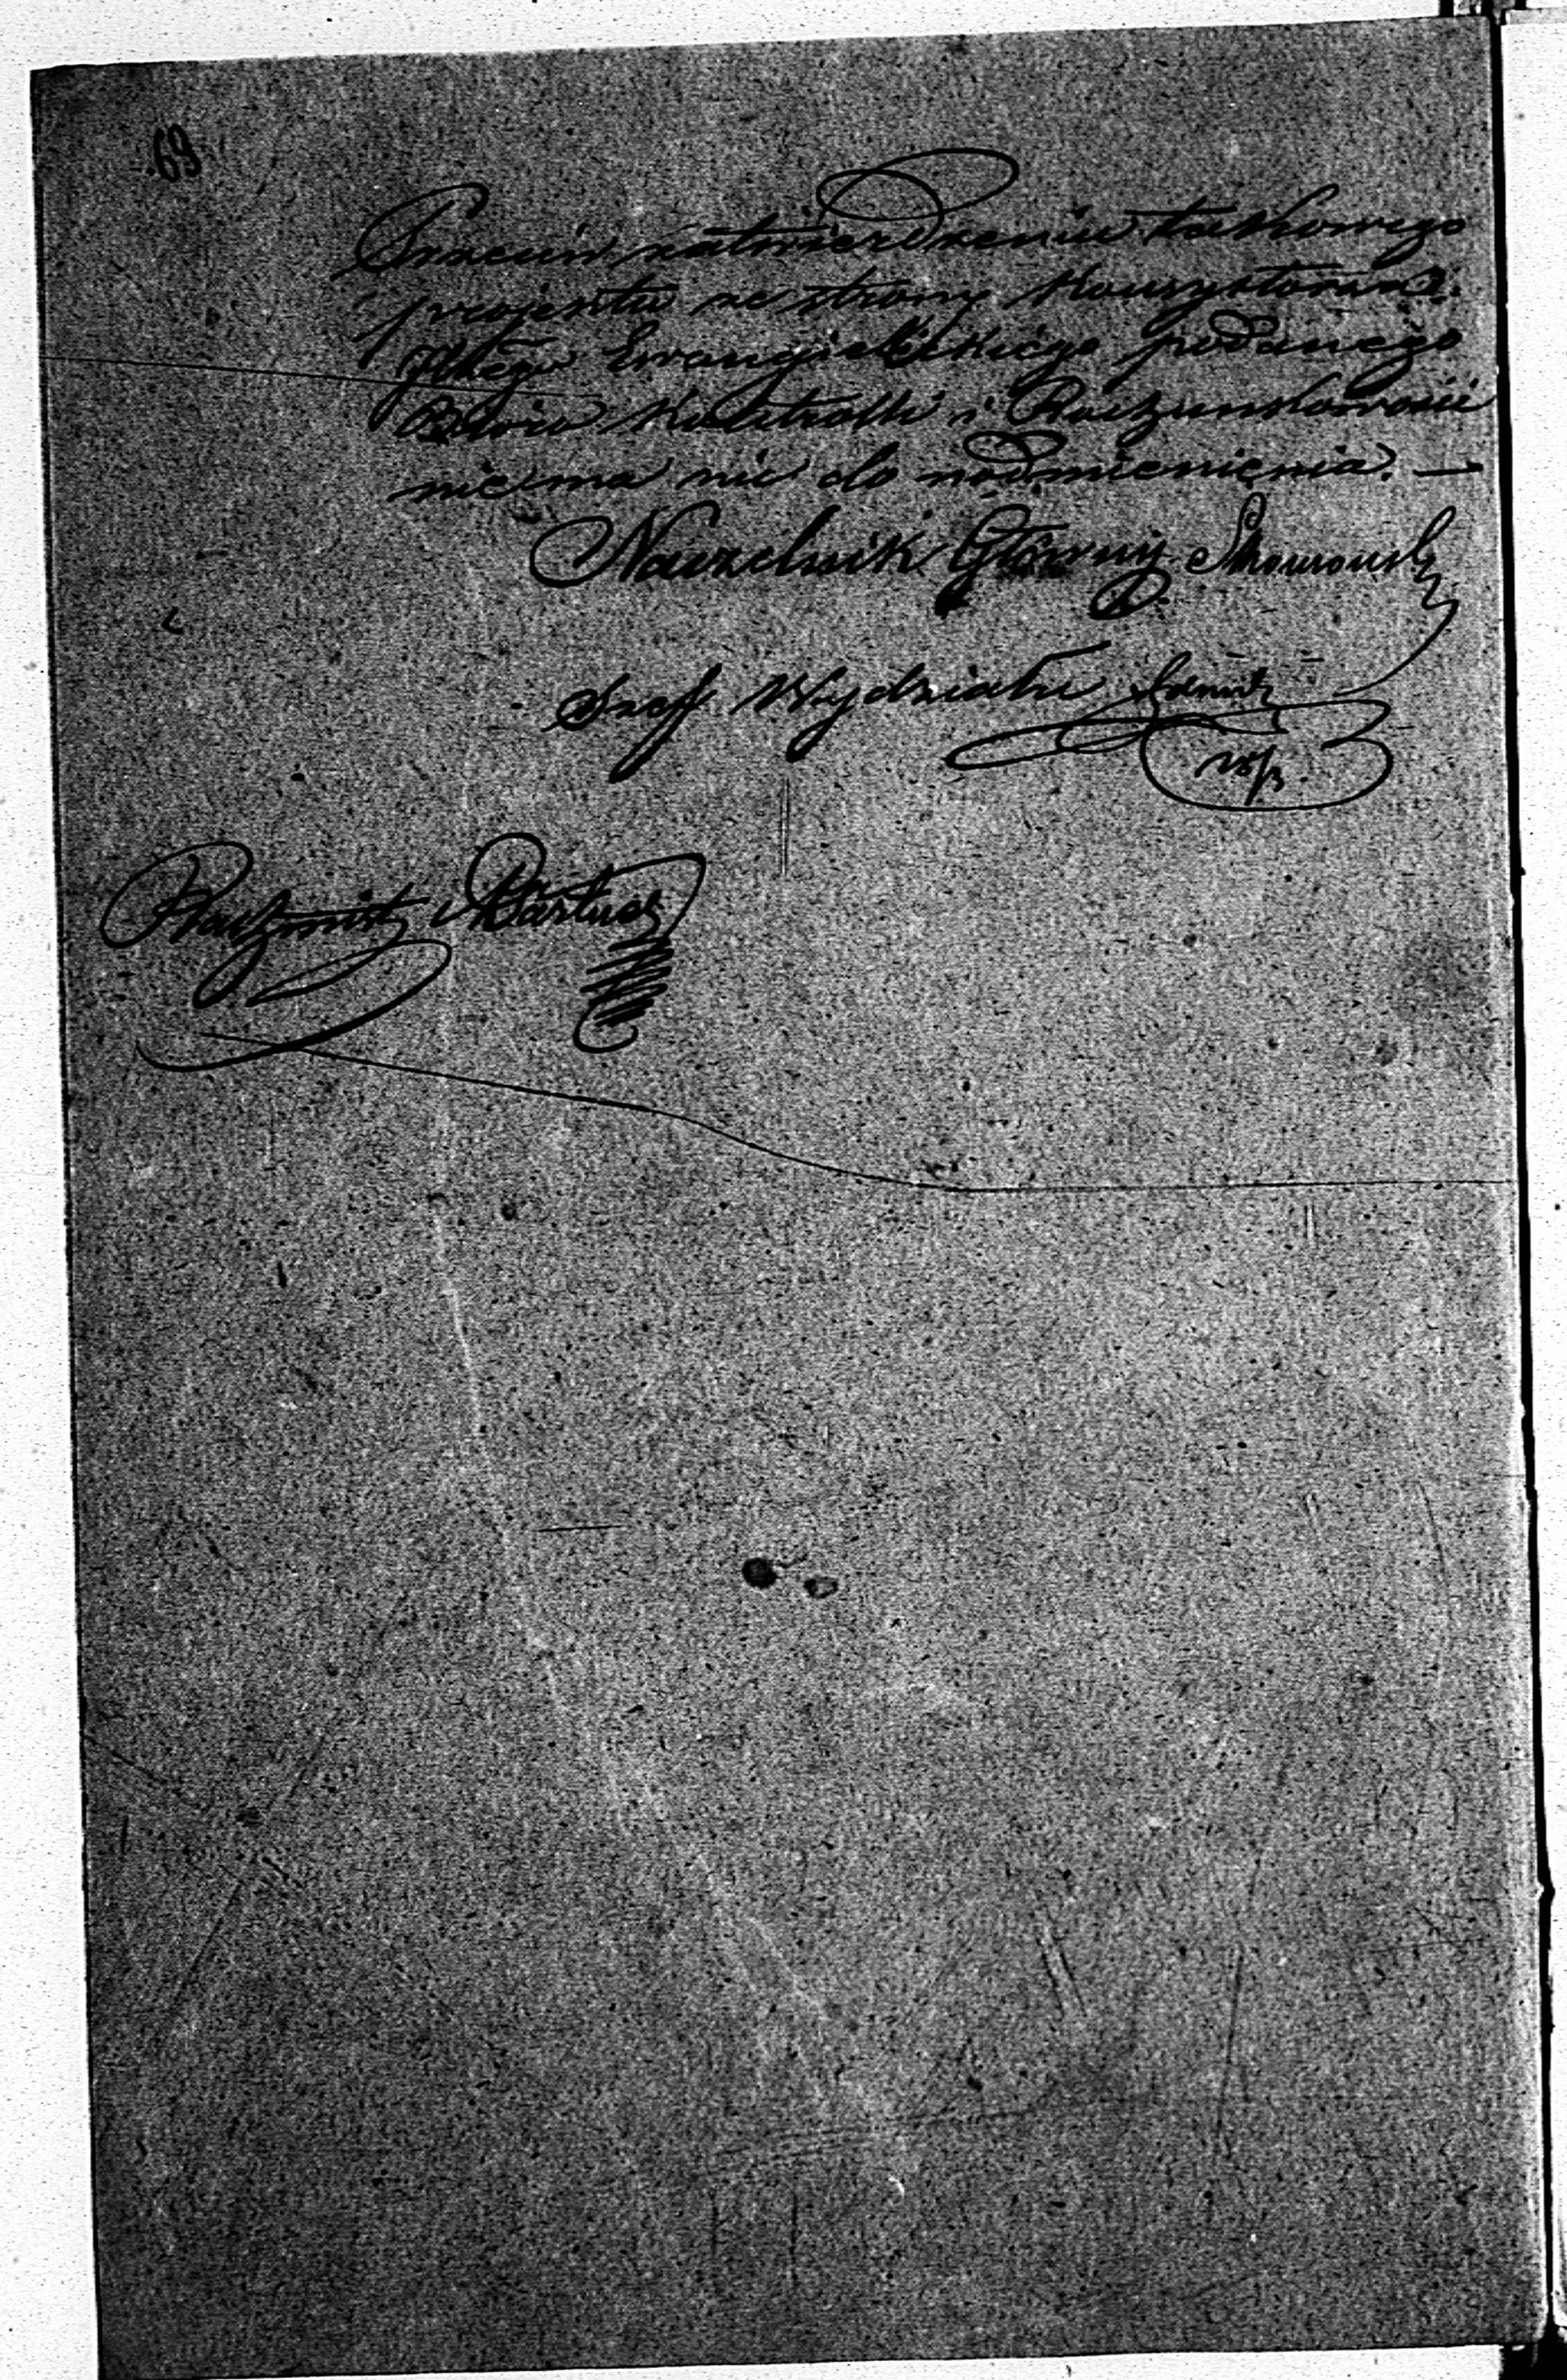 69
Przeciw zatwierdzeniu takowego
projektu ze strony Konsystorza
Ewangielickiego podanego
Bióro Kontrolli i Rachunkowości
nie ma nic do nadmienienia. —
Naczelnik Główny Skowroński
Szef Wydziału
Rachmistrz Bartusz